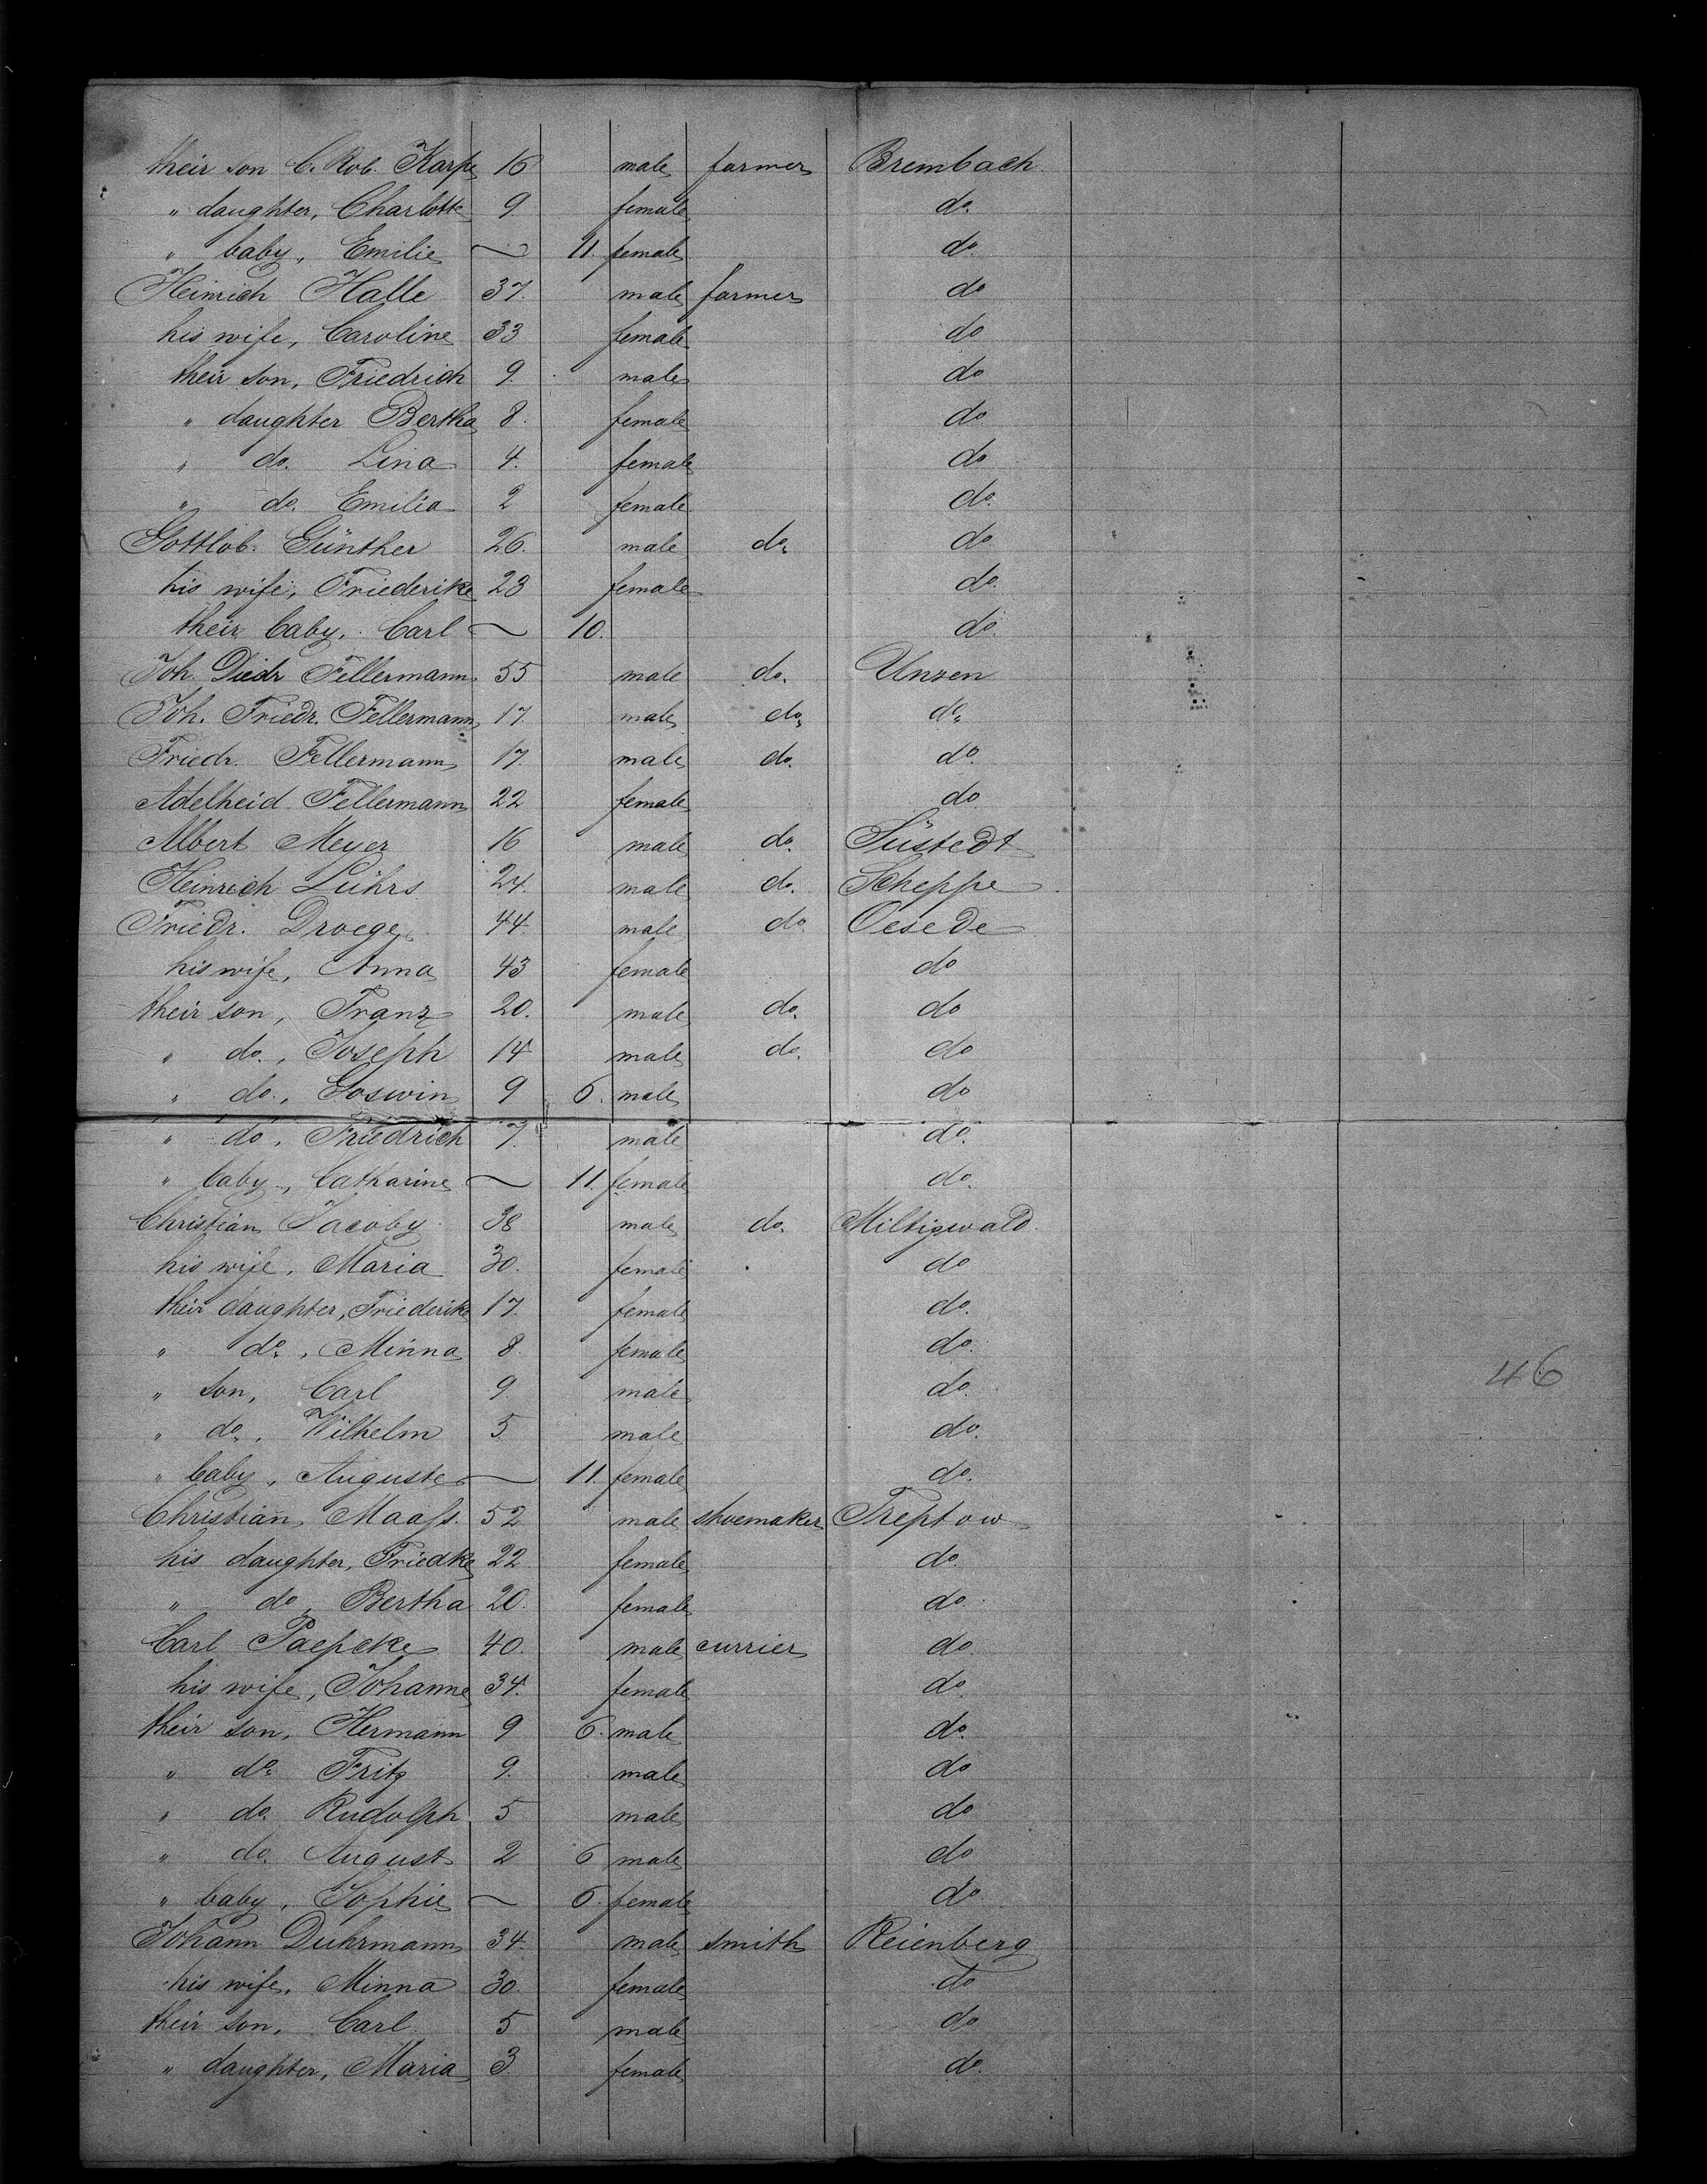 their son C. Rob. Karpe 16 male farmer Brembach.
" daughter, Charlotte 9 female do.
" baby, Emilie — 11. female do.
Heinrich Halle 37. male farmer do
his wife, Caroline 33 female do
their son, Friedrich 9. male do
" daughter Bertha 8. female do.
" do. Lina 4. female do
" do. Emilia 2 female do.
Gottlob. Günther 26. male do. do.
his wife, Friederike 23 female do.
their baby, Carl — 10. do.
Joh. Diedr Fellermann 55 male do. Unzen
Joh. Friedr. Fellermann 17 male do. do.
Friedr. Fellermann 17. male do. do.
Adelheid Fellermann 22 female do
Albert Meyer 16 male do. Süstedt
Heinrich Lührs 24. male do. Scheppe
Friedr. Droege 44. male do Oesede
his wife, Anna 43 female do
their son, Franz 20. male do. do
" do., Joseph 14 male do. do
" do., Goswin 9 6. male do
" do, Friedrich 7. male do.
" baby, Catharine — 11. female do.
Christian Jacoby 38 male do. Miltigwald.
his wife, Maria 30. female do
their daughter, Friederike 17. female do.
" do., Minna 8. female do.
" son, Carl 9. male do.
" do., Wilhelm 5 male do.
46
" baby, Auguste — 11. female do.
Christian Maass. 52 male shoemaker Treptow
his daughter, Friedke 22 female do.
" do, Bertha 20. female do.
Carl Paepcke 40. male currier do.
his wife, Johanne 34. female do.
their son, Hermann 9 6. male do.
" do. Fritz 9. male do
" do. Rudolph 5 male do
" do. August 2 6 male do
" baby, Sophie — 6. female do.
Johann Duhrmann 34. male smith Reienberg
his wife, Minna 30. female do
their son, Carl 5 male do
" daughter, Maria 3. female do.